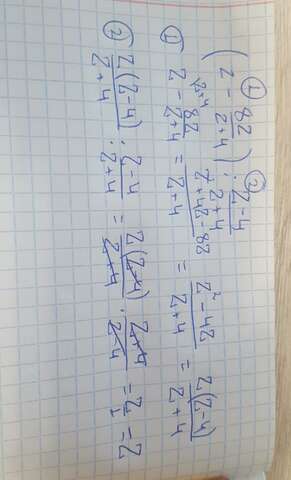 ① ②
(z - 8z/z+4) : z-4/z+4
① z\z+4 - 8z/z+4 = z+4z-8z/z+4 = z²-4z/z+4 = z(z-4)/z+4
② z(z-4)/z+4 : z-4/z+4 = z(z-4)/z+4 · z+4/z-4 = z/1 = z